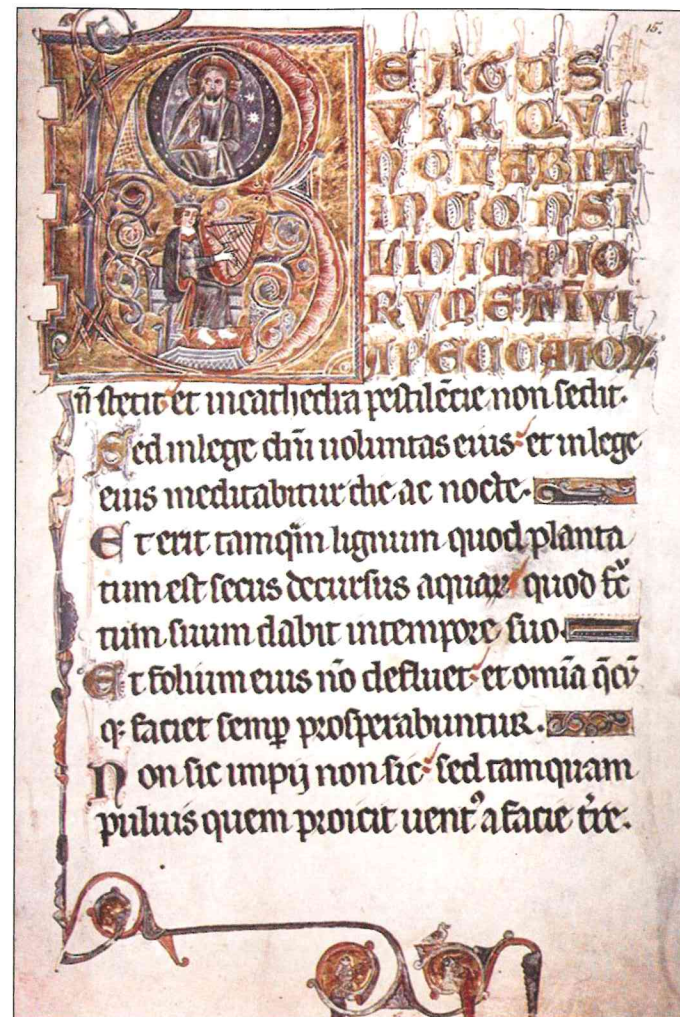 15.
BEATUS
VIR QVI
NON ABIIT
IN CONSI
LIO IMPIO
RVM ET I̅ VI
A PECCATOꝜ
n̄ stetit et in cathedra pestilēcie non sedit.
Sed in lege dn̄i uoluntas eius et in lege
eius meditabitur die ac nocte.
Et erit tamq̄m lignum quod planta
tum est secus decursus aquaꝝ quod fc̄
tum suum dabit in tempore suo.
Et folium eius nō defluet et omīa q̄cū
q; faciet semꝑ prosperabuntur.
Non sic impij non sic sed tamquam
puluis quem proicit uentꝰ a facie t̄re.